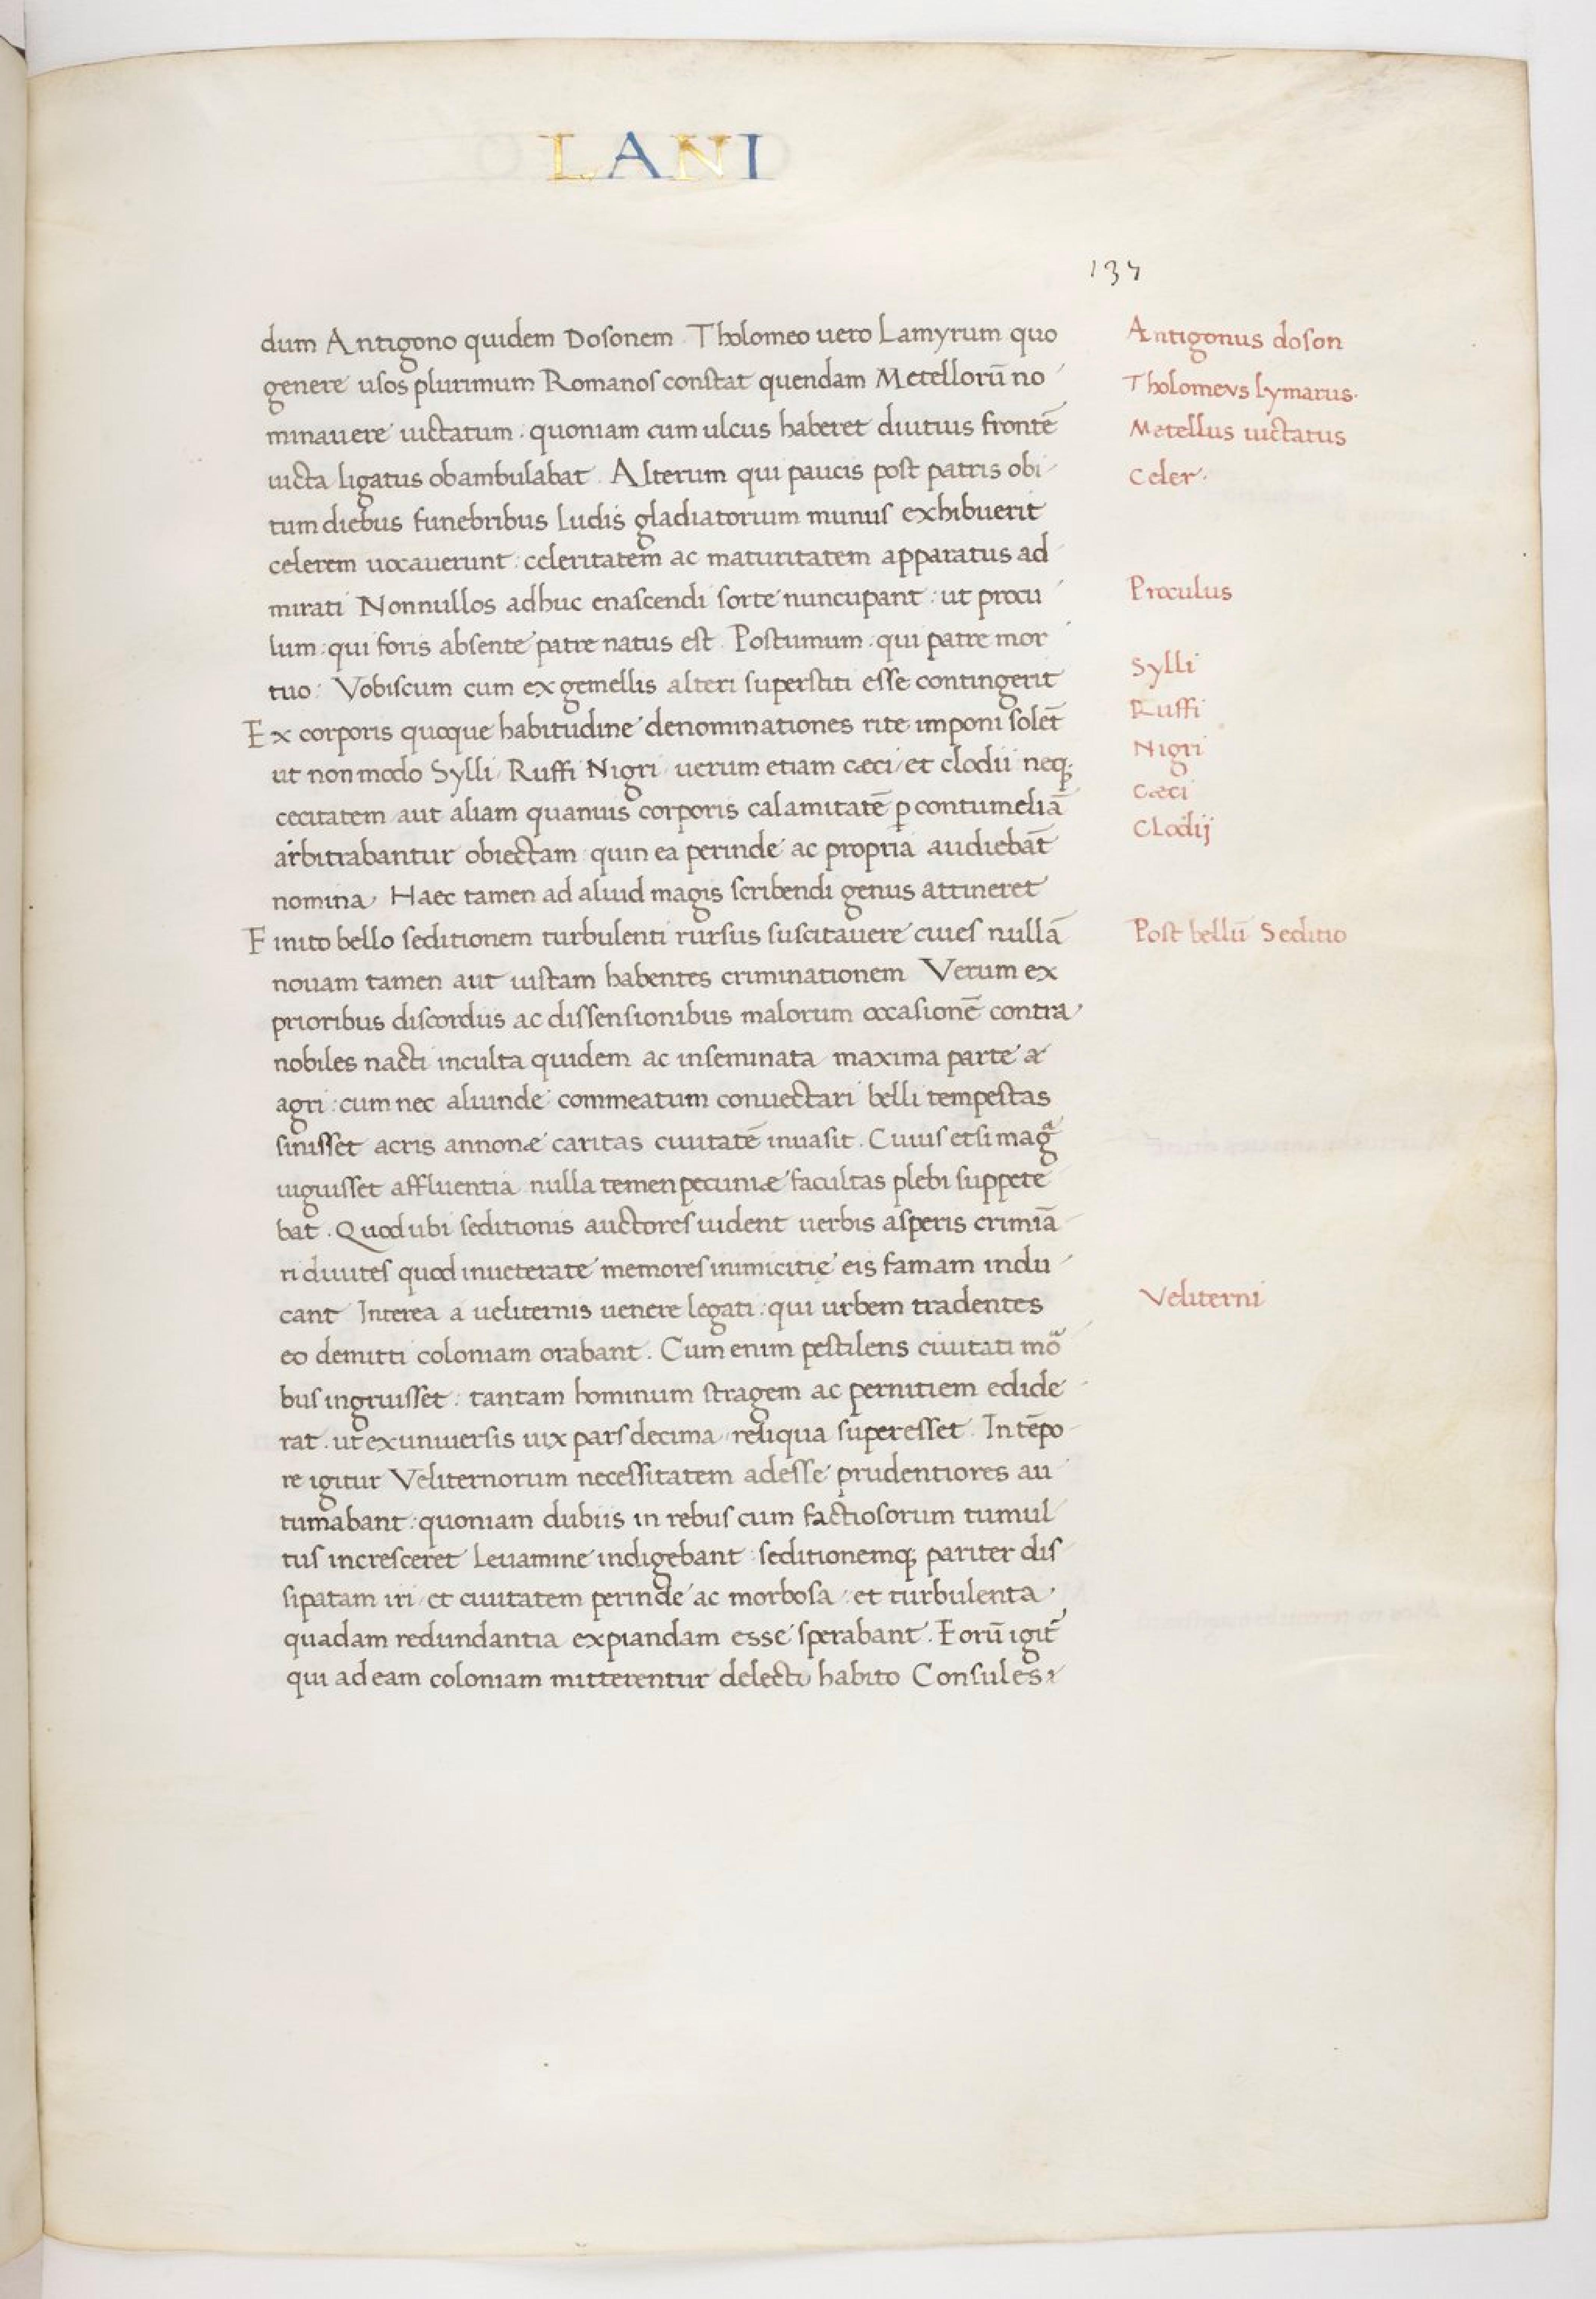 LANI
137
dum Antigono quidem Dosonem. Tholomeo uero Lamyrum quo
genere usos plurimum Romanos constat quendam Metellorū no
minauere uictatum: quoniam cum ulcus haberet diutius frontē
uicta ligatus obambulabat. Alterum qui paucis post patris obi
tum diebus funebribus ludis gladiatorium munus exhibuerit
celerem uocauerunt: celeritatem ac maturitatem apparatus ad
mirati Nonnullos adhuc enascendi sorte nuncupant: ut procu
lum: qui foris absente patre natus est. Postumum: qui patre mor
tuo: Vobiscum cum ex gemellis alteri superstiti esse contingerit
Ex corporis quoque habitudine denominationes rite imponi solēt
ut non modo Sylli, Ruffi Nigri, uerum etiam cæci, et clodii neq;
cecitatem aut aliam quamuis corporis calamitatē ꝑ contumeliā
arbitrabantur obiectam quin ea perinde ac propria audiebāt
nomina, Haec tamen ad aliud magis scribendi genus attineret
Finito bello seditionem turbulenti rursus suscitauere ciues nullā
nouam tamen aut iustam habentes criminationem Verum ex
prioribus discordiis ac dissensionibus malorum occasionē contra
nobiles nacti inculta quidem ac inseminata maxima parte a
agri: cum nec aliunde commeatum conuectari belli tempestas
sinisset acris annonæ caritas ciuitatē inuasit. Cuius etsi magͣ
uiguisset affluentia nulla temen pecuniæ facultas plebi suppete
bat. Quod ubi seditionis auctores uident uerbis asperis crimiā
ri diuites quod inueterate memores inimicitię eis famam indu
cant Interea a ueliternis uenere legati: qui urbem tradentes
eo demitti coloniam orabant. Cum enim pestilens ciuitati mo
bus ingruisset: tantam hominum stragem ac pernitiem edide
rat. ut ex uniuersis uix pars decima reliqua superesset. In tēpo
re igitur Veliternorum necessitatem adesse prudentiores au
tumabant: quoniam dubiis in rebus cum factiosorum tumul
tus incresceret leuamine indigebant: seditionemq; pariter dis
sipatam iri, et ciuitatem perinde ac morbosa, et turbulenta
quadam redundantia expiandam esse sperabant. Eorū igit̄
qui ad eam coloniam mitterentur delectu habito Consules
Antigonus doson
Tholomevs lymarus.
Metellus uictatus
Celer.
Proculus
Sylli
Ruffi
Nigri
Cæci
Clodij
Post bellū Seditio
Veliterni